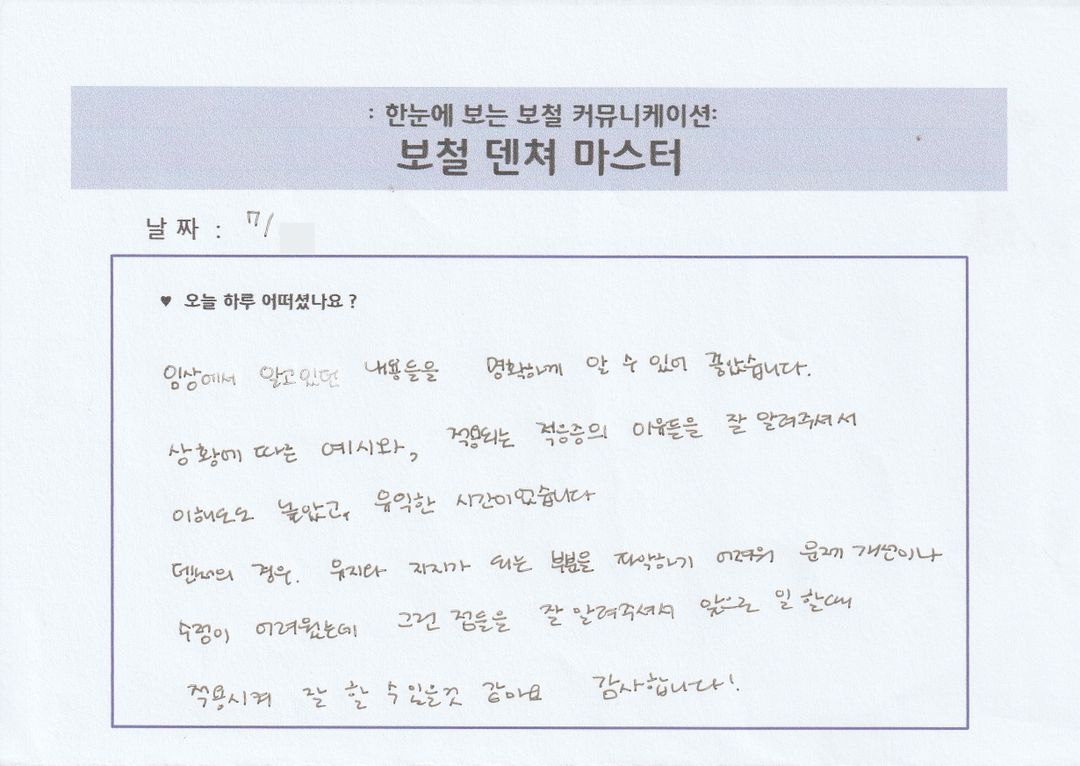 : 한눈에 보는 보철 커뮤니케이션:
보철 덴쳐 마스터
날 짜 : 7/
♥ 오늘 하루 어떠셨나요 ?
임상에서 알고있던 내용들을 명확하게 알 수 있어 좋았습니다.
상황에 따른 예시와, 적용되는 적응증의 이유들을 잘 알려주셔서
이해도도 높았고, 유익한 시간이었습니다
덴쳐의 경우. 유지와 지지가 되는 부분을 파악하기 어려워 문제 개선이나
수정이 어려웠는데 그런 점들을 잘 알려주셔서 앞으로 일 할때
적용시켜 잘 할 수 있을것 같아요 감사합니다!.